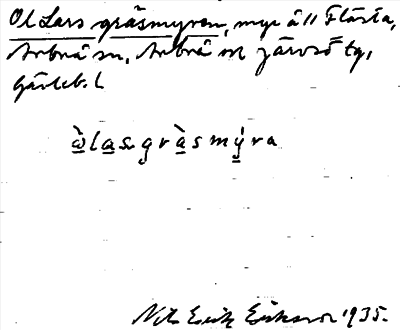 Ol Lars gräsmyren, myr å 11 Flästa,
Arbrå sn, Arbrå o Järvsö tg,
Gävleb. l
ὼl a s g r à s m ý r a
Nils Erik Eriksson 1935.